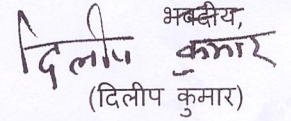 भवदीय,
दिलीप कुमार
(दिलीप कुमार)